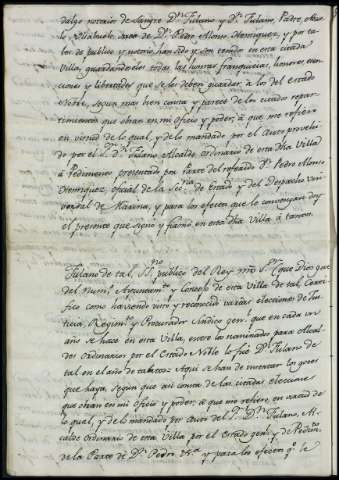 dalgo notorio de Sangre Dn. Fulano y Dn. Fulano, Padre, Abue
lo y Bisabuelo, de Dn. Pedro Alonso Henriquez, y por ta
les de publico y notorio han sido y son tenidos en esta citada
Villa, guardandoseles todas las honras franquezas, honores, exen
ciones y libertades que se les deben guardar a los del estado
Noble, segun mas bien consta y parece de los citados repar
timientos que obran en mi oficio y poder; à que me refiero
en virtud de lo qual, y de lo mandado por el Auto provehi
do por el Sr. Dn. Fulano Alcalde ordinario de esta dha Villa
à Pedimento presentado por parte del referido Dn. Pedro Alonso
Henriquez, oficial de la Sec.ria de Estado y del Despacho Uni
versal de Marina, y para los efectos que le convengan doy
el presente que signo y firmo en esta dha Villa à tantos.
Fulano de tal, SSno. publico del Rey nro Sr. (que Dios gue)
del Numo. Ayuntamto. y Concejo de esta Villa de tal Certi
fico como haviendo visto y reconocido varias elecciones de Jus
ticia, Regimto. y Procurador Sindico genl. que en cada un
año se hace en esta Villa, entre los nominados para Alcal
des Ordinarios por el Estado Noble lo fué Dn. Fulano de
tal en el año de tantos Aqui se han de mencionar los goces
que haya, segun que asi consta de las citadas elecciones
que obran en mi oficio y poder; à que me refiero, en virtud de
lo qual, y de lo mandado por Auto del Sr. Dn. Fulano, Al
calde Ordinario de esta Villa por el Estado genl. y de Pedimto.
de la Parte de Dn. Pedro &ca. y para los efectos qe. le